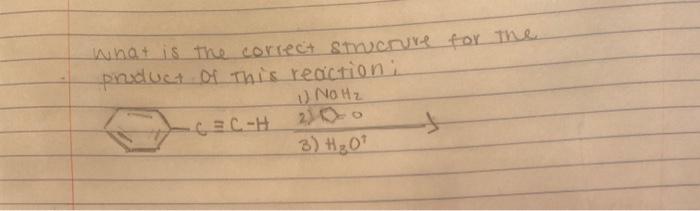 what is the correct structure for the
product of this reaction:
1) NaH2
-C≡C-H 2) O
3) H3O+